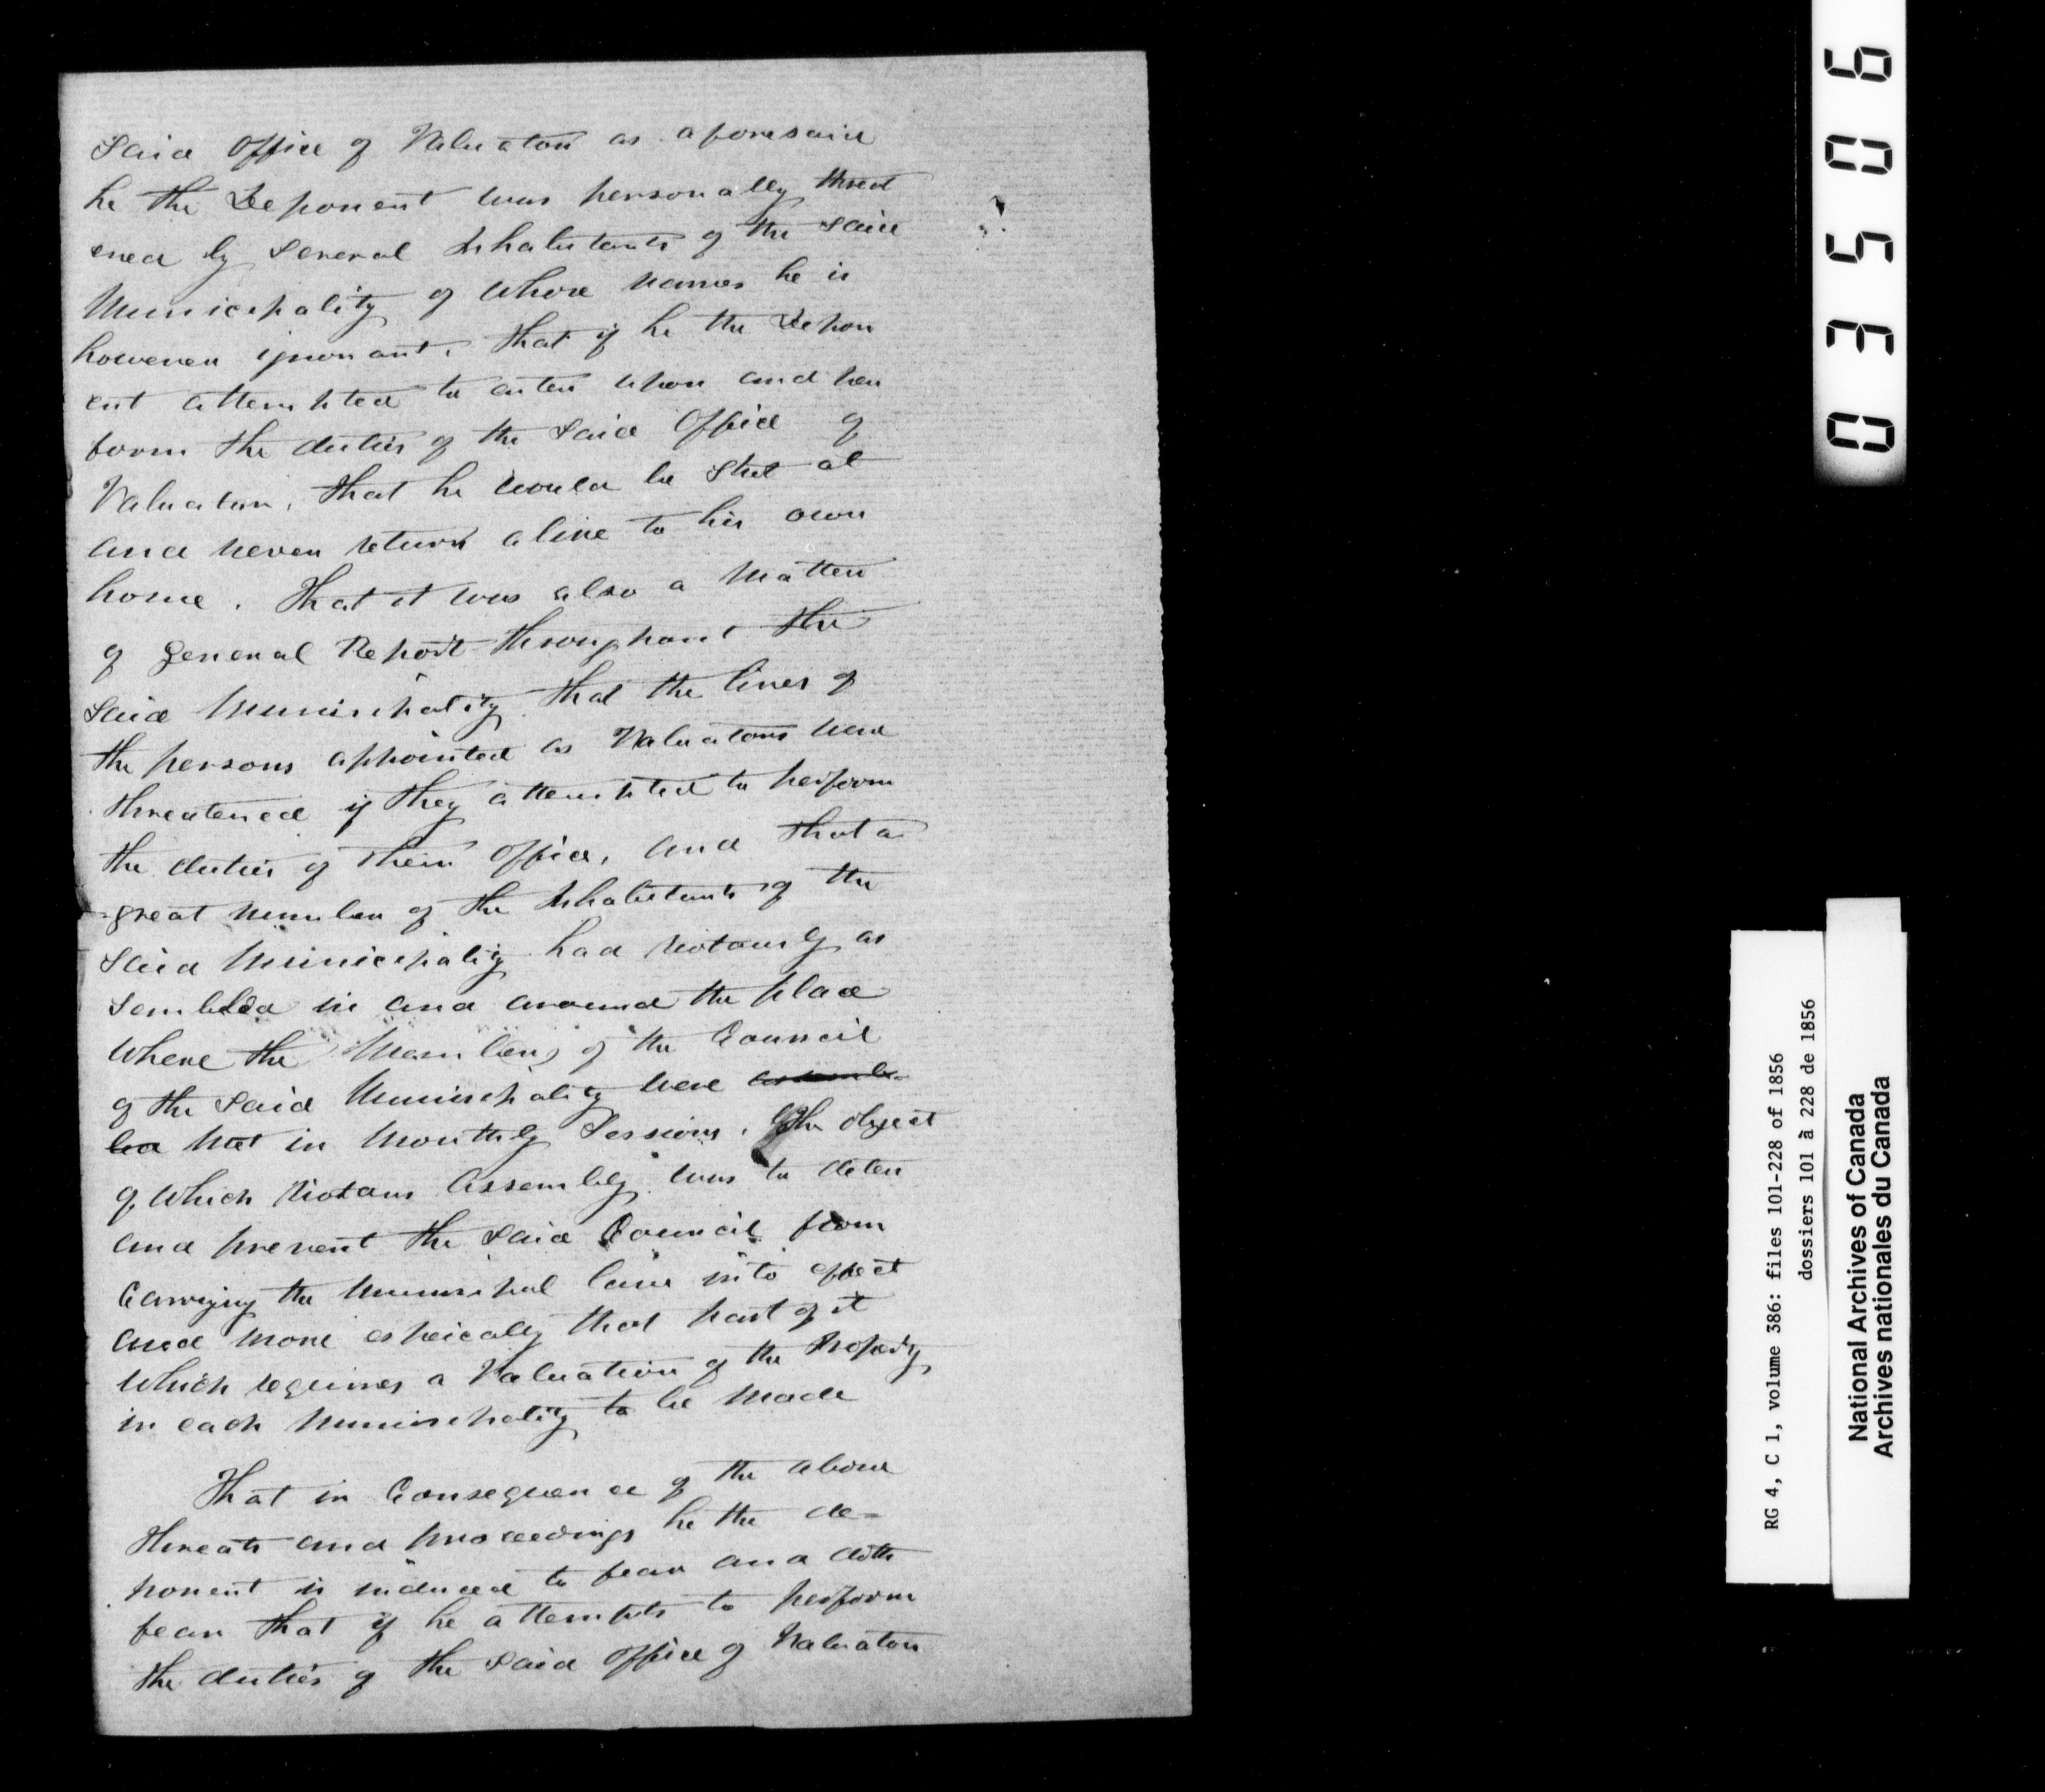 Said Office of Valuator as aforesaid
he the Deponent was personally threat
ened by Several Inhabitants of the said
Municipality of whose names he is
however ignorant, that if he the Depon
ent attempted to enter upon and per
form the duties of the Said Office of
Valuator, that he would be Shot at
and never return alive to his own
home. That it was also a matter
of general Report throughout the
Said Municipality that the lives of
the persons appointed as Valuators were
threatened if they attempted to perform
the duties of their Office, and that a
great number of the Inhabitants of the
Said Municipality had riotously as
sembled in and around the place
where the Members of the Council
of the Said Municipality were assemb
led met in Monthly Sessions, the object
of which riotous Assembly was to deter
and prevent the Said Council from
Carrying the Municipal law into effect
and more especially that part of it
which requires a Valuation of the Property
in each Municipality to be made
That in Consequence of the above
threats and proceedings he the de=
ponent is induced to fear and doth
fear that if he attempts to perform
the duties of the said Office of Valuator
03506
RG 4, C 1, volume 386: files 101-228 of 1856
dossiers 101 à 228 de 1856
National Archives of Canada
Archives nationales du Canada